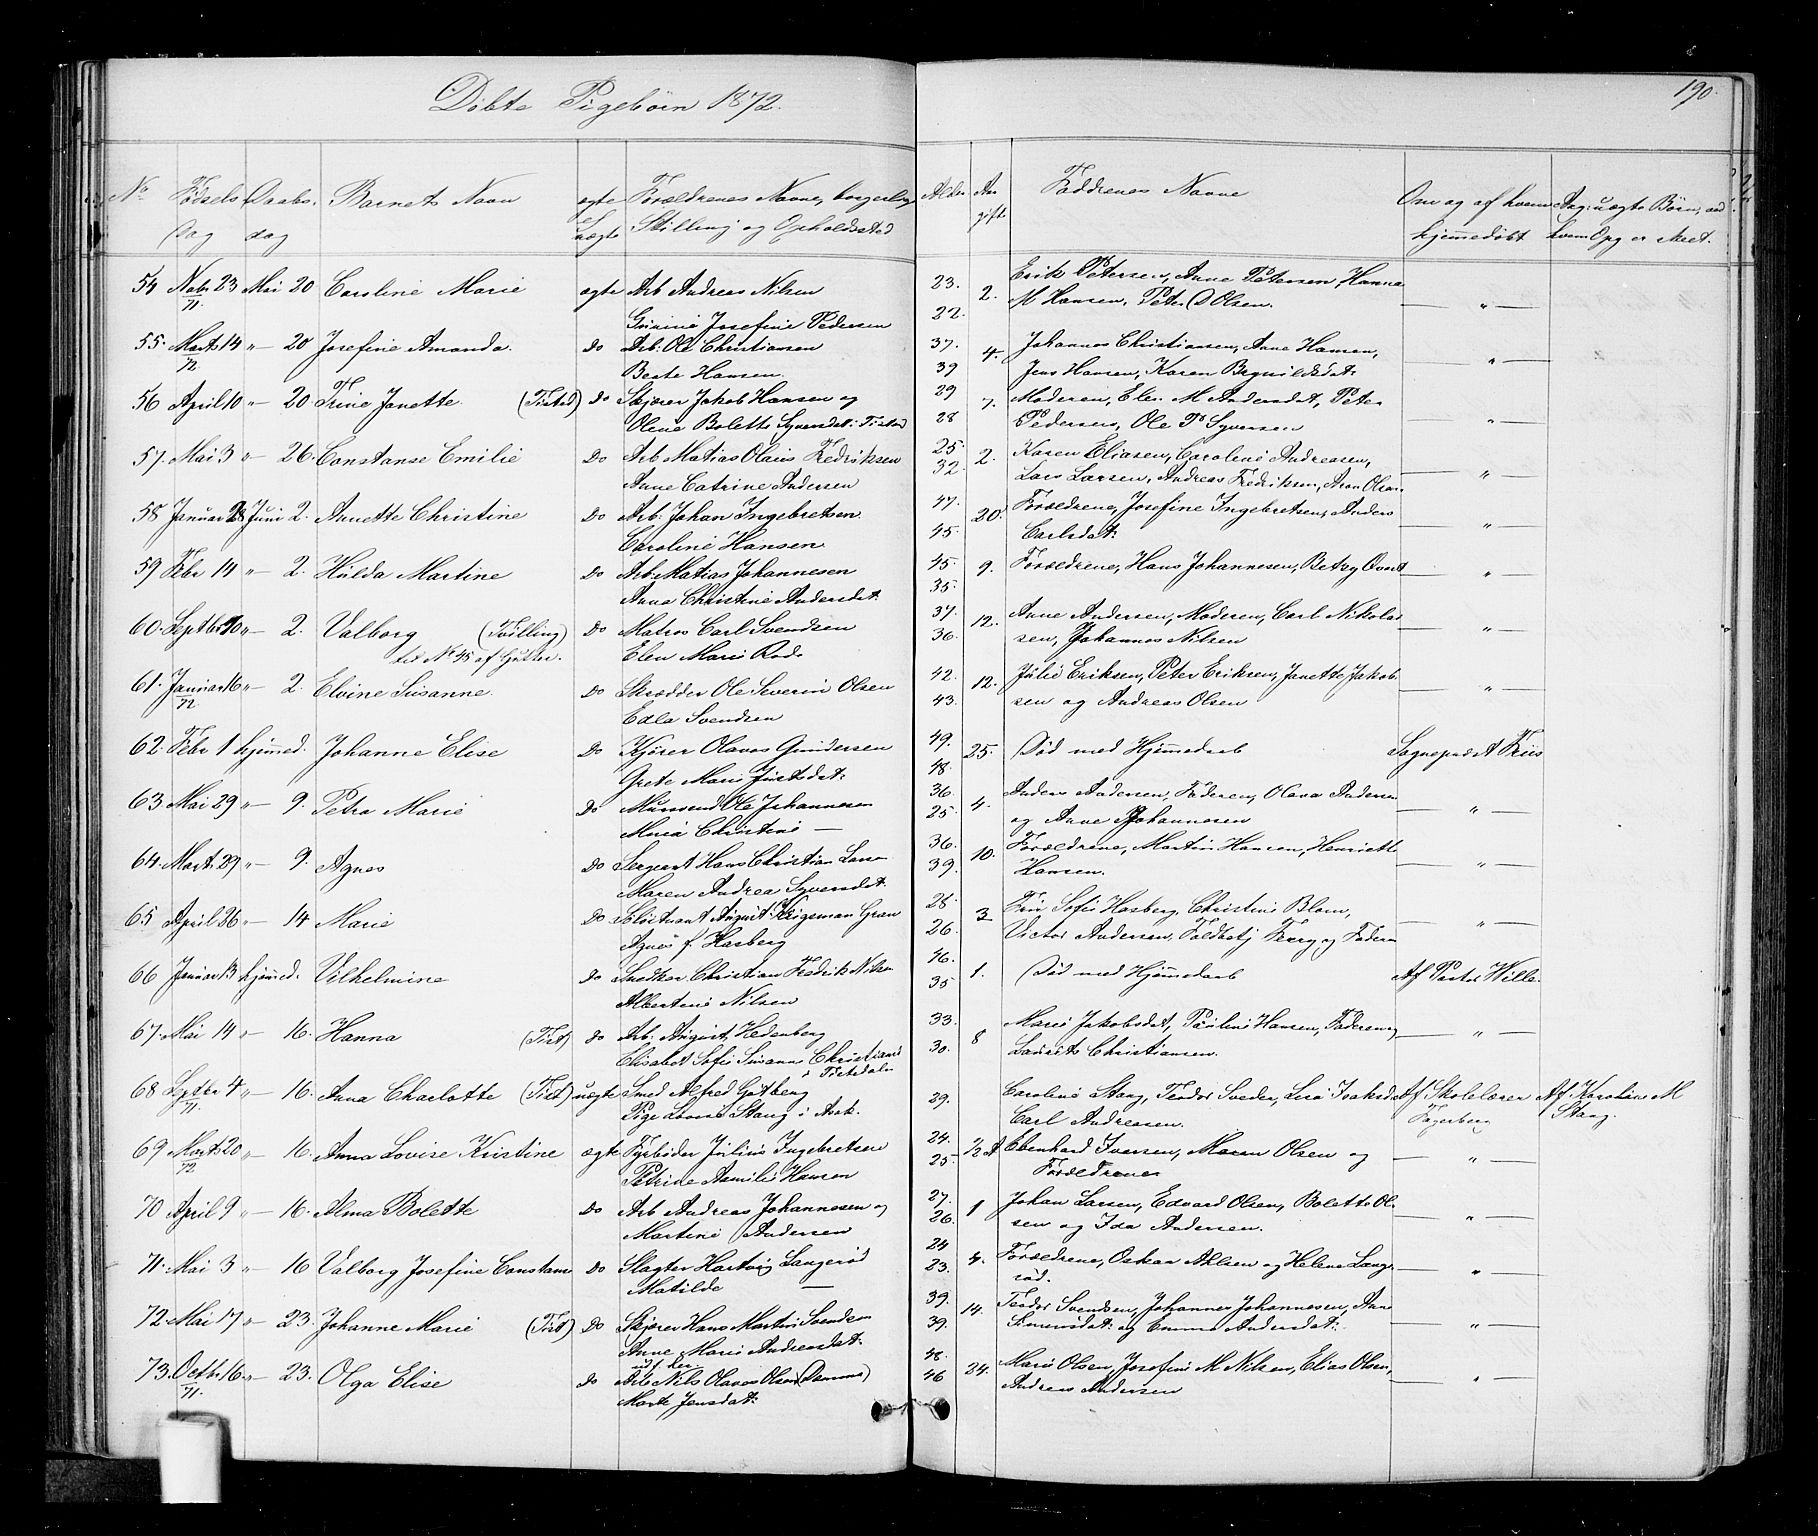 Döbte Pigebörn 1872.
190.
No Födsels Daabs. Barnets Navn ægte Forældrenes Navne, borgerlig Alder An Faddrenes Navne Om og af hvem Ang. uægte Börn, ved
Dag dag & uægte Stilling og Opholdssted gift hjemmedöbt hvem Opg er skeet.
54 Nobr 23 Mai 20 Caroline Marie ægte Arb Andreas Nilsen 23. 2. Erik Petersen, Anne Petersen, Hanna
71. Gurine Josefine Pedersen 22. M Hansen, Peter O Olsen. — " —
55. Marts 14 " - 20 Josefine Amanda. Do Arb: Ole Christiansen 37. 4. Johannes Christiansen, Anne Hansen,
72 Beate Hansen. 39 Jens Hansen, Karen Brynildsdat: — " —
56 April 10 " - 20 Trine Janette. (Tisted) Do Skjærer Jakob Hansen og 29 7. Moderen, Elen M Andersdat, Peter
Olene Bolette Syversdat: Tistad 28 Pedersen, Ole P Syversen — " —
57. Mai 3 " - 26. Constanse Emilie Do Arb Matias Olaus Fredriksen 25. 2. Karen Eliasen, Caroline Andreasen,
Anne Catrine Andersen 32. Lars Larsen, Andreas Fredriksen, Aron Olsen — " —
58 Januar 28 Juni 2. Annette Christine Do Arb: Johan Ingebretsen 47. 20. Forældrene, Josefine Ingebretsen, Anders
Caroline Hansen 45. Carlsdat: — " —
59 Febr 14 " - 2. Hulda Martine Do Arb: Matias Johannesen 45. 9. Forældrene, Hans Johannesen, Betzy Qvest — " —
Anna Christine Andersdat: 35.
60. Septbr 10 " - 2. Valborg (Tvilling) Do Matros Carl Svendsen 37. 12. Anne Andersen, Moderen, Carl Nikolai
til No 45 af Gutter. Elen Marie Rod. 36. sen, Johannes Nilsen — " —
61. Januar 16 " - 2. Elvine Susanne. Do Skrædder Ole Severin Olsen 42. 12. Julie Eriksen, Peter Eriksen, Janette Jakob
72 Edla Svendsen 43. sen og Andreas Olsen — " —
62. Febr 1 hjemmed. Johanne Elise Do Kjörer Olavos Gundersen 49. 25. Död med Hjemmedaab Sognepræst Friis
Grete Marie Justsdat: 48.
63 Mai 29 " - 9. Petra Marie Do Murmand Ole Johannesen 36. 4. Anders Andersen, Faderen, Olava Andersen
Maria Christine — 25. og Anne Johannesen — " —
64. Marts 29 " - 9. Agnes Do Sergeant Hans Christian Larsen 36. 10. Forældrene, Martin Hansen, Henriette
Maren Andrea Syversdat. 39. Hansen. — " —
65 April 26 " - 14 Marie Do August Krigsman Gran 28. 3 Fru Sofie Hasberg, Christine Blom,
Agnes f. Hasberg 26. Victor Andersen, og Faderen — " —
66 Januar 13 hjemmed. Vilhelmine Do Snedker Christian Fredrik Nilsen 46. 1. Död med Hjemmedaab Af Pastor Wille
Albertine Nilsen 35.
67. Mai 14 " - 16. Hanna (Tist) Do Arb. August Hedenberg 33. 8 Marie Jakobsdat, Pauline Hansen, Faderen og
Elisabet Sofie Susanne Christians 30. Laurits Christiansen. — " —
i Tistedalen
68 Septbr 4 " - 16. Anna Charlotte (Tist) uægte Smed Alfred Götberg 29. Caroline Stang, Teodor Sveder, Lisa Isaksd Af Skolelærer Af Karoline M
71. Pige Lovise Stang i Ask. Carl Andreasen. Fagerberg Stang.
69 Marts 20 " - 16. Anna Lovise Kristine ægte Fyrböder Julius Ingebretsen 24. ½ A Ebenhard Iversen, Maren Olsen og
72 Petrine Amilie Hansen 25. Forældrene — " —
70 April 9 " - 16. Alma Bolette Do Arb Andreas Johannesen og 27. 1 Johan Larsen, Edvard Olsen, Bolette Ol
Martine Andersen 26. sen og Ida Andersen. — " —
71. Mai 3 " - 16 Valborg Josefine Constanse Do Slagter Hartvig Langeröd 24 4. Forældrene, Oskar Ahlsen og Helene Lange
Matilde — 23. röd. — " —
72. Mai 17 " - 23. Johanne Marie (Tist) Do Skjærer Hans Martin Svendsen 39. 14. Teodor Svendsen, Johannes Johannesen, Ane
Anne Marie Andreasdat: 39. Simensdat: og Emma Andersdat: — " —
73. Octbr 16 " - 23. Olga Elise Do Arb Nils Olavas Olsen (Damma) 48. 24. Marie Olsen, Josefine M Nilsen, Elias Olsen,
71. Marte Jensdat: 46 Andreas Andersen — " —